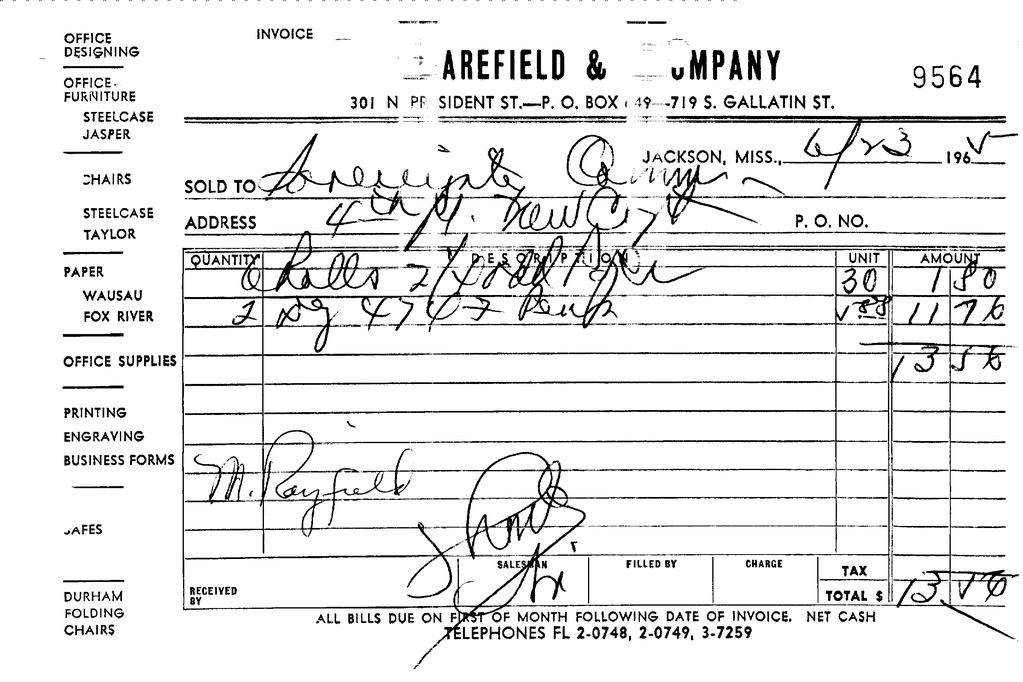 OFFICE DESIGNING
OFFICE FURNITURE
STEELCASE
JASPER
CHAIRS
STEELCASE
TAYLOR
PAPER
WAUSAU
FOX RIVER
OFFICE SUPPLIES
PRINTING
ENGRAVING
BUSINESS FORMS
SAFES
DURHAM
FOLDING
CHAIRS
INVOICE
AREFIELD & OMPANY
9564
301 N PRESIDENT ST.—P. O. BOX 49—719 S. GALLATIN ST.
JACKSON, MISS., 6/23 1965
SOLD TO Sovereignty Comm.
ADDRESS 4th fl. New Cap P. O. NO.
QUANTITY DESCRIPTION UNIT AMOUNT
6 Rolls Paper 30 1 80
2 4747 88 11 76
13 56
M. Rayfield
SALESMAN FILLED BY CHARGE TAX
RECEIVED BY TOTAL $ 13 56
ALL BILLS DUE ON FIRST OF MONTH FOLLOWING DATE OF INVOICE. NET CASH
TELEPHONES FL 2-0748, 2-0749, 3-7259